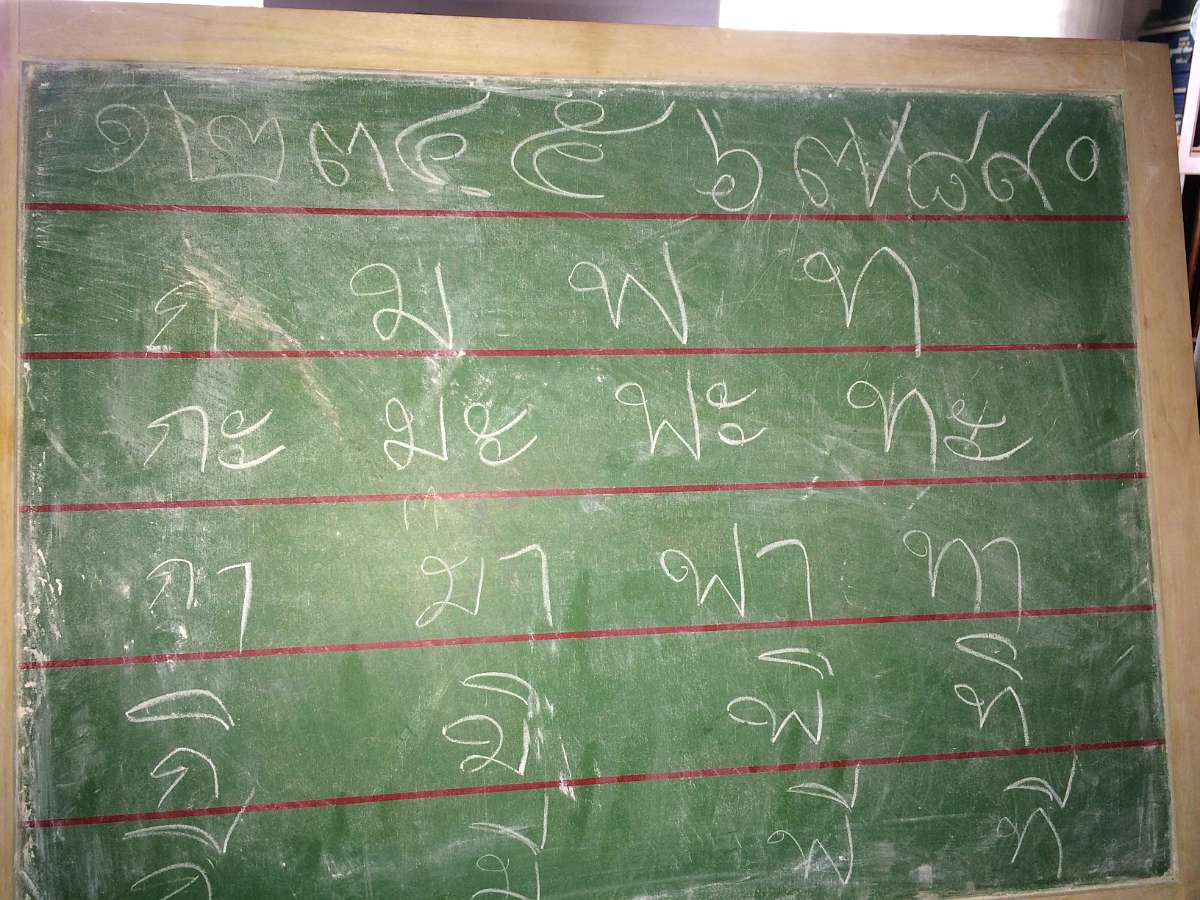 ๑ ๒ ๓ ๔ ๕ ๖ ๗ ๘ ๙ ๐
ก ม ฟ ท
กะ มะ ฟะ ทะ
กา มา ฟา ทา
กิ มิ ฟิ ทิ
กี มี ฟี ที